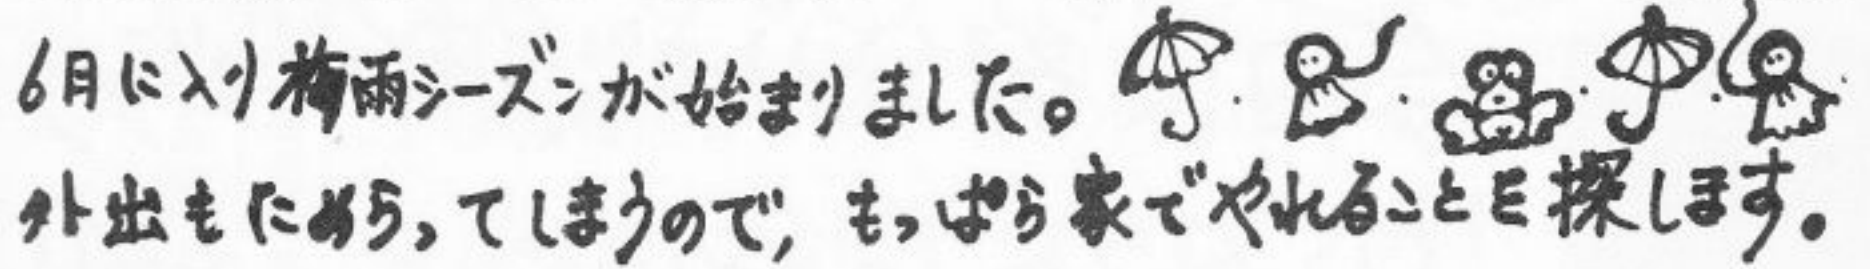 6月に入り梅雨シーズンが始まりました。
外出もためらってしまうので、もっぱら家でやれることを探します。